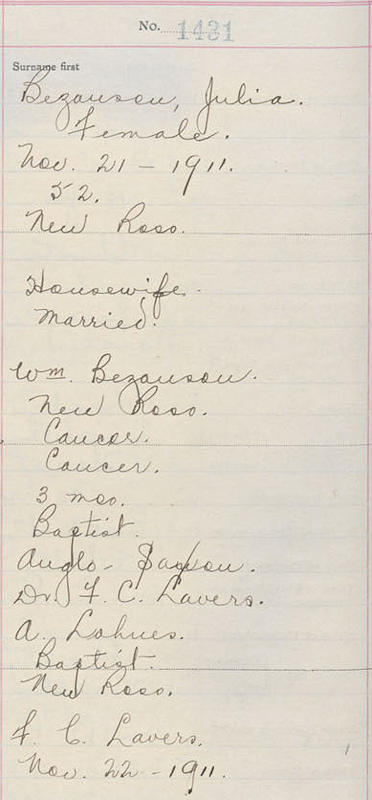 No. 1431
Surname first
Bezanson, Julia.
Female.
Nov. 21 - 1911.
52.
New Ross.
Housewife.
Married.
Wm. Bezanson.
New Ross.
Cancer.
Cancer.
3 mos.
Baptist.
Anglo-Saxon.
Dr. F. C. Lavers.
A. Lohnes.
Baptist.
New Ross.
F. C. Lavers.
Nov. 22 - 1911.